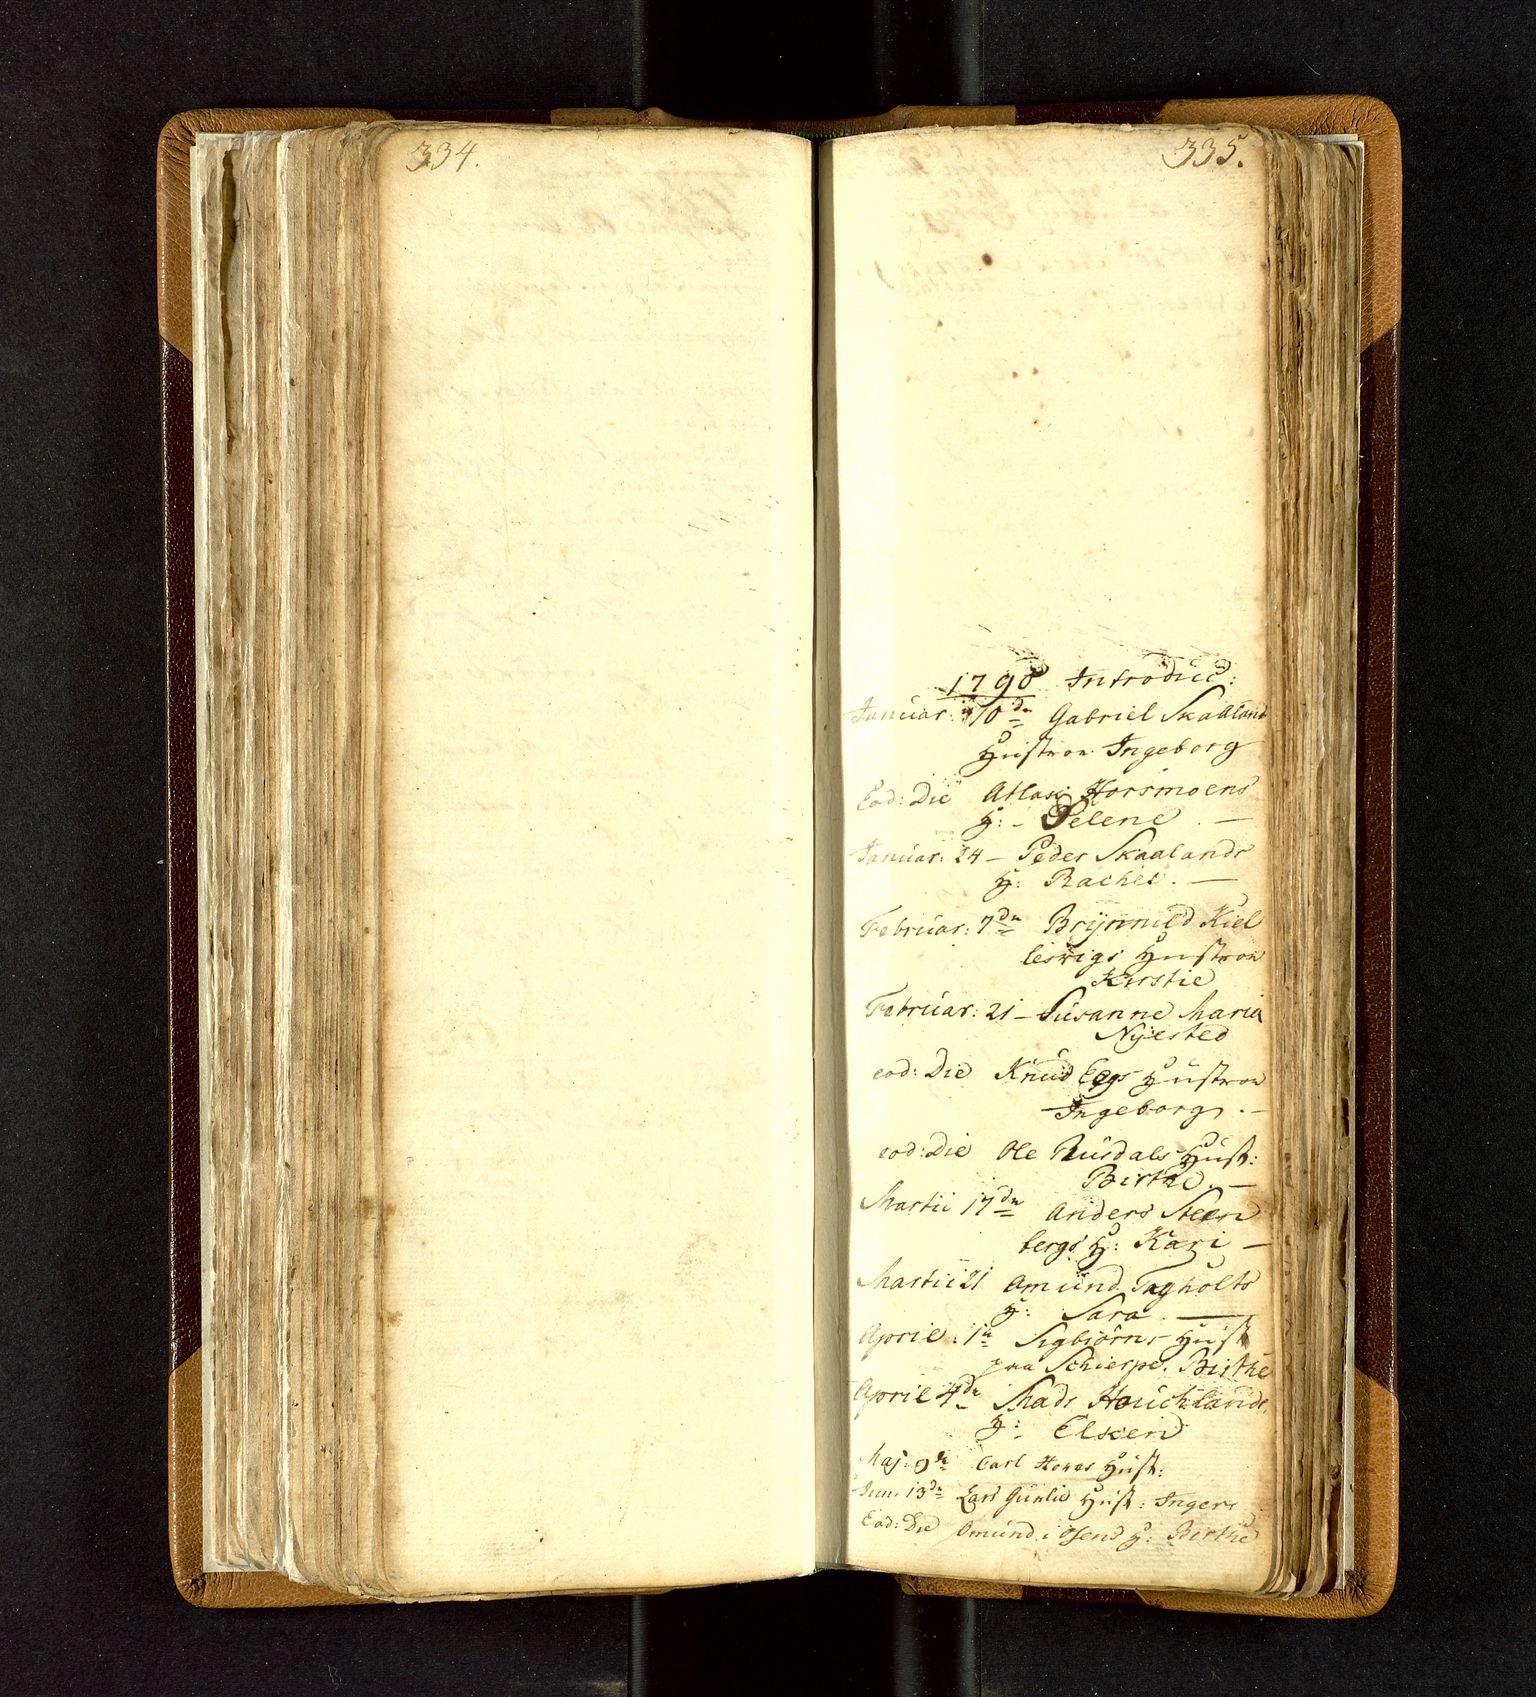 334.
335.
1790 Introduc:
Januar: 10dn Gabriel Skaaland
Hustroe Ingeborg
Eod: Die Atlak Horsmoens
H: - Selene . —
Januar: 24 — Peder Skaalands
H: Rachel . —
Februar: 7dn Brynnild Kiel
lesvigs Hustroe
Kirstie
Februar: 21 — Susanne Maria
Nyested
eod: Die Knud Eegs Hustroe
Ingeborg . —
eod: Die Ole Ruusdals Hust:
Birthe . —
Martii 17dn Anders Steen
bergs H: Kari —
Martii 21 Amund Tagholts
H: Sara . —
April: 1n Sigbiörns Hust
paa Schierpe. Birthe
April 4dn Mads Houchlands
H: Elsken
Maj: 9n Carl Hoves Hust:
Jun. 13dn Lars Gunlie Hust: Inger
Eod: Die Omund i Osend H: Birthe